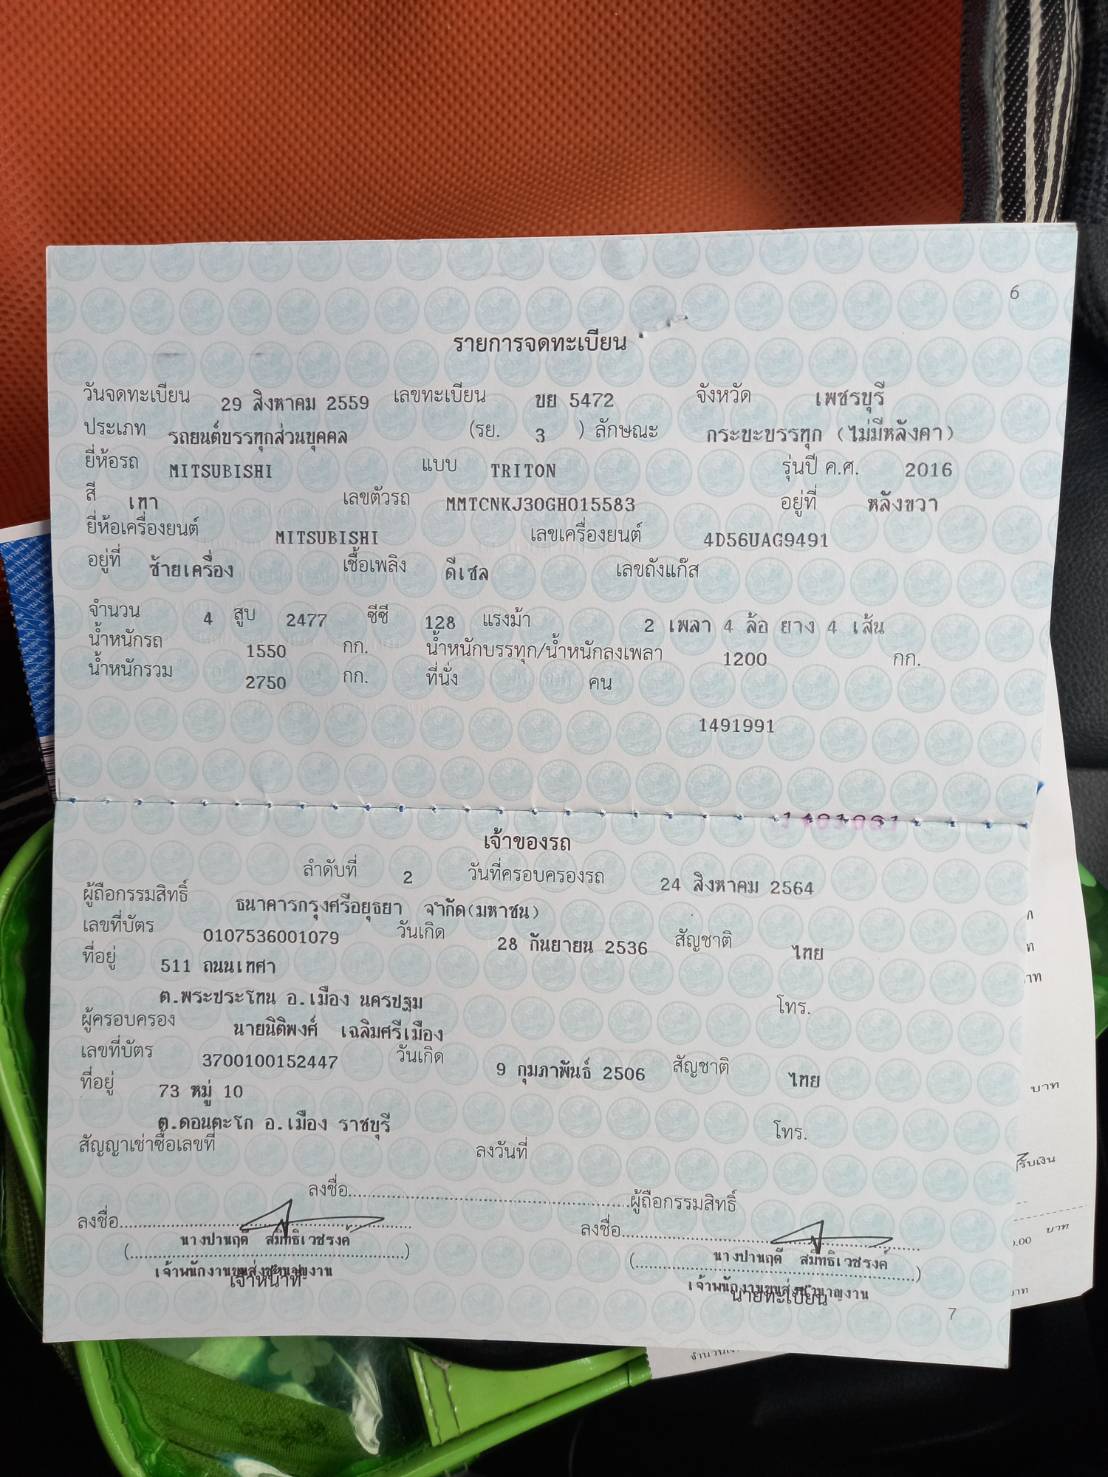 6
รายการจดทะเบียน
วันจดทะเบียน 29 สิงหาคม 2559 เลขทะเบียน ขย 5472 จังหวัด เพชรบุรี
ประเภท รถยนต์บรรทุกส่วนบุคคล (รย. 3 ) ลักษณะ กระบะบรรทุก (ไม่มีหลังคา)
ยี่ห้อรถ MITSUBISHI แบบ TRITON รุ่นปี ค.ศ. 2016
สี เทา เลขตัวรถ MMTCNKJ30GH015583 อยู่ที่ หลังขวา
ยี่ห้อเครื่องยนต์ MITSUBISHI เลขเครื่องยนต์ 4D56UAG9491
อยู่ที่ ซ้ายเครื่อง เชื้อเพลิง ดีเซล เลขถังแก๊ส
จำนวน 4 สูบ 2477 ซีซี 128 แรงม้า 2 เพลา 4 ล้อ ยาง 4 เส้น
น้ำหนักรถ 1550 กก. น้ำหนักบรรทุก/น้ำหนักลงเพลา 1200 กก.
น้ำหนักรวม 2750 กก. ที่นั่ง คน
1491991
เจ้าของรถ
ลำดับที่ 2 วันที่ครอบครองรถ 24 สิงหาคม 2564
ผู้ถือกรรมสิทธิ์ ธนาคารกรุงศรีอยุธยา จำกัด(มหาชน)
เลขที่บัตร 0107536001079 วันเกิด 28 กันยายน 2536 สัญชาติ ไทย
ที่อยู่ 511 ถนนเทศา
ต.พระประโทน อ.เมือง นครปฐม โทร.
ผู้ครอบครอง นายนิติพงศ์ เฉลิมศรีเมือง
เลขที่บัตร 3700100152447 วันเกิด 9 กุมภาพันธ์ 2506 สัญชาติ ไทย
ที่อยู่ 73 หมู่ 10
ต.ดอนตะโก อ.เมือง ราชบุรี โทร.
สัญญาเช่าซื้อเลขที่ ลงวันที่
ลงชื่อ ผู้ถือกรรมสิทธิ์
ลงชื่อ ลงชื่อ
นางปานฤดี สมิทธิเวชรงค์ นางปานฤดี สมิทธิเวชรงค์
เจ้าพนักงานขนส่งชำนาญงาน เจ้าพนักงานขนส่งชำนาญงาน
เจ้าหน้าที่ นายทะเบียน
7
บาท
รับเงิน
บาท